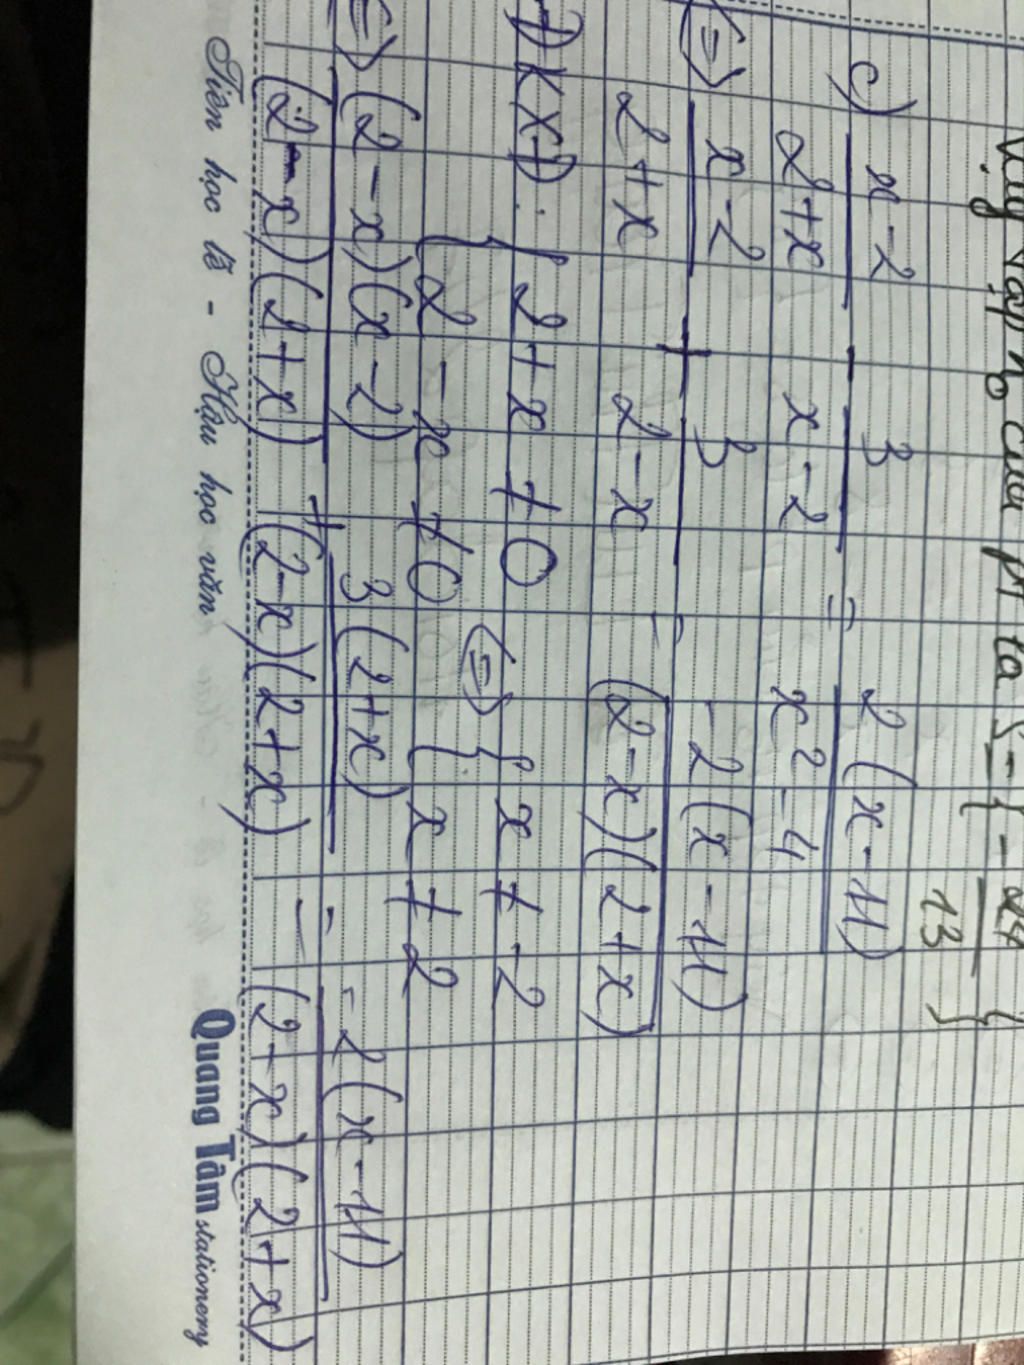 Vậy nghiệm của pt là S = { - 24/13 }
c) (x - 2)/(2 + x) - 3/(x - 2) = 2(x - 11)/(x² - 4)
(=) (x - 2)/(2 + x) + 3/(2 - x) = -2(x - 11)/((2 - x)(2 + x))
ĐKXĐ: { 2 + x ≠ 0 { 2 - x ≠ 0 (=) { x ≠ -2 { x ≠ 2
(=) (2 - x)(x - 2)/((2 - x)(2 + x)) + 3(2 + x)/((2 - x)(2 + x)) = -2(x - 11)/((2 - x)(2 + x))
Tiên học lễ - Hậu học văn
Quang Tâm stationery